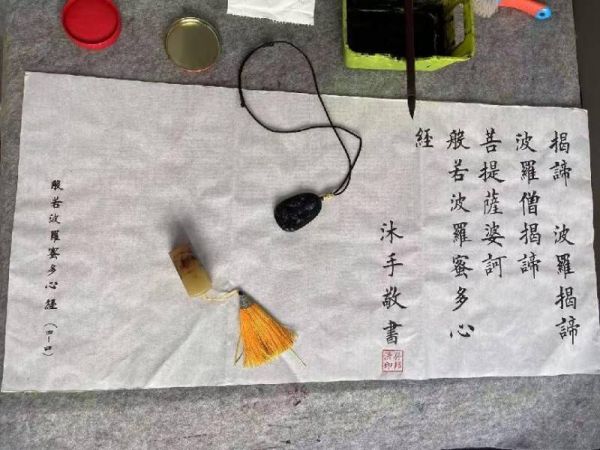 揭諦　波羅揭諦
波羅僧揭諦
菩提薩婆訶
般若波羅蜜多心
經
沐手敬書
般若波羅蜜多心經（四-四）